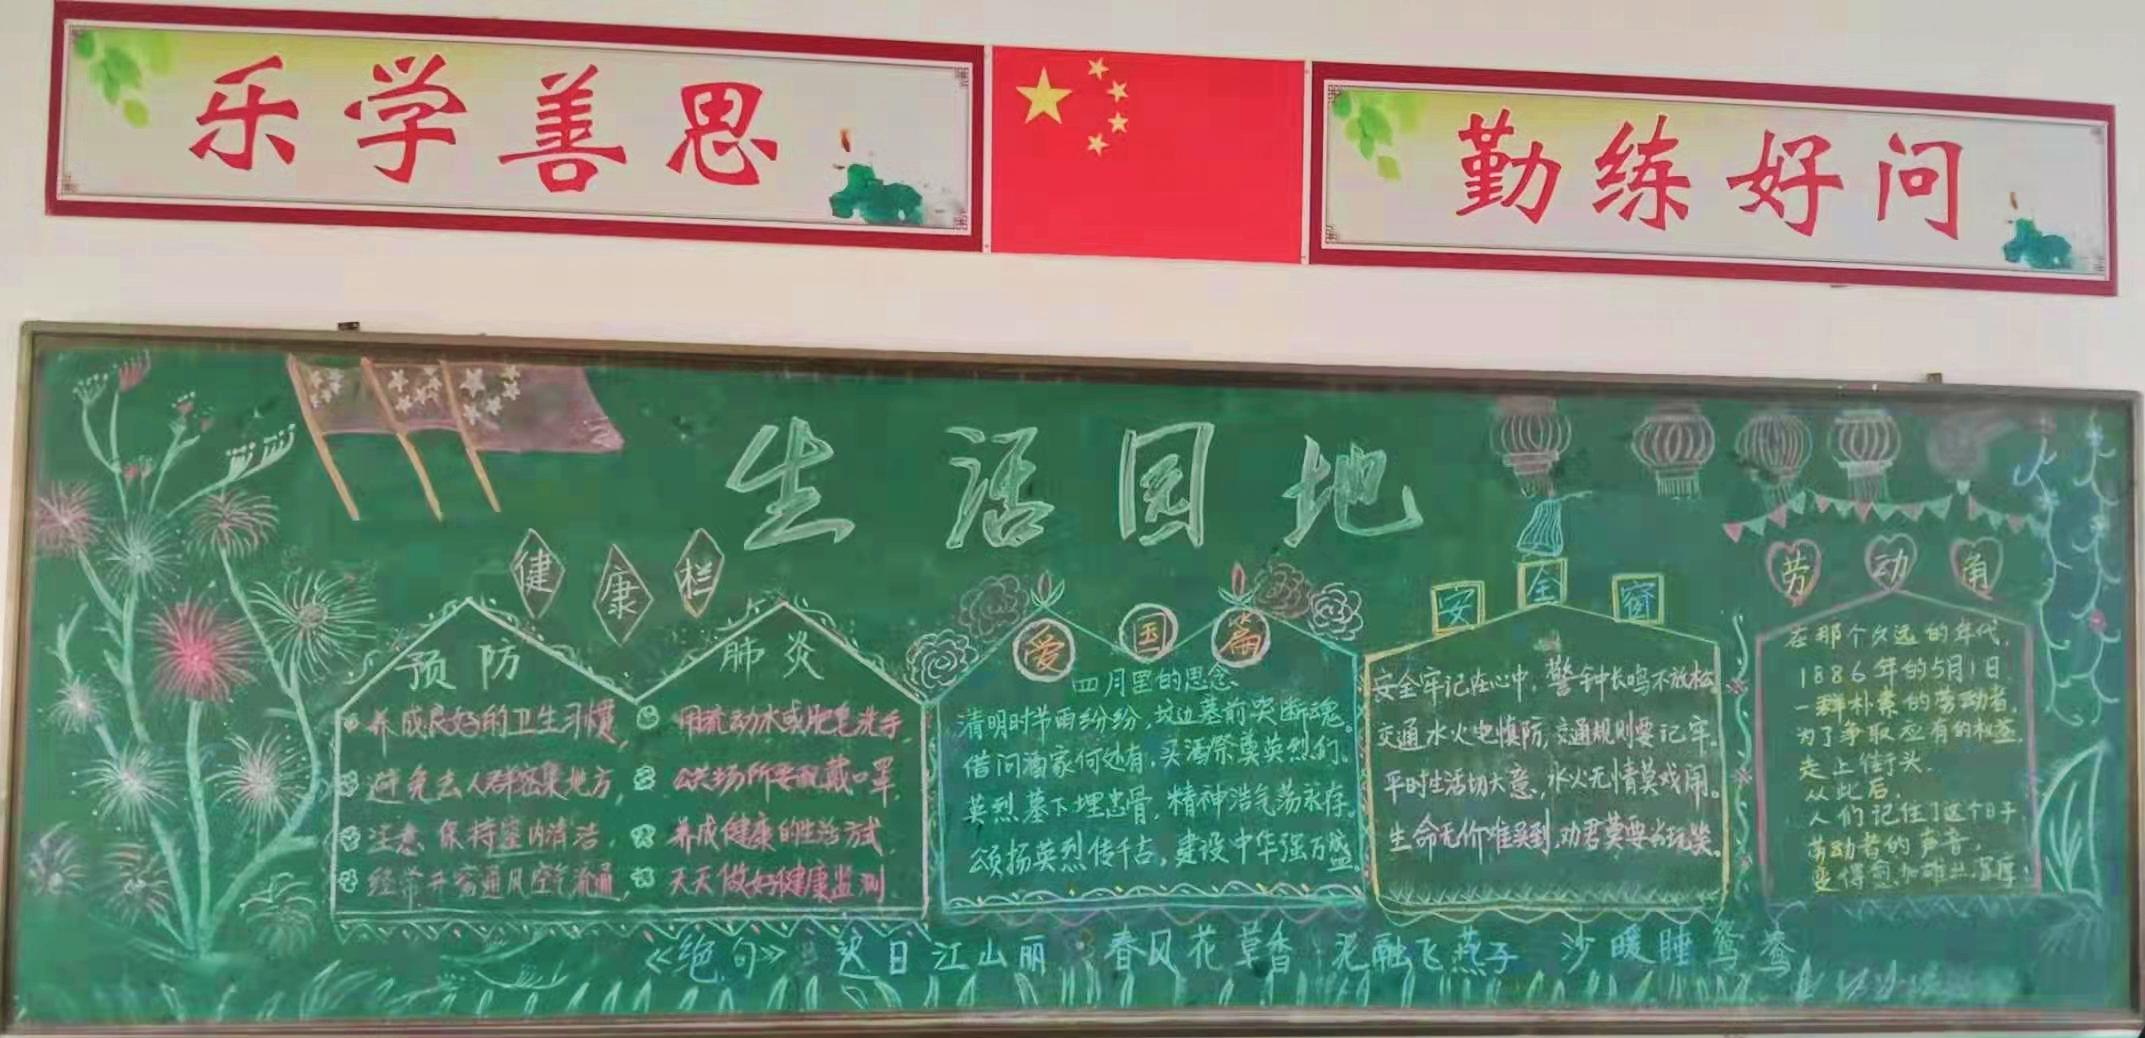 乐学善思
勤练好问
生活园地
健康栏
预防 肺炎
养成良好的卫生习惯，
避免去人群密集地方，
注意保持室内清洁，
经常开窗通风空气流通，
用流动水或肥皂洗手
公共场所要配戴口罩，
养成健康的生活方式
天天做好健康监测
爱国篇
四月里的思念
清明时节雨纷纷，坟边墓前哭断魂。
借问酒家何处有，买酒祭奠英烈们。
英烈墓下埋忠骨，精神浩气荡永存。
颂扬英烈传千古，建设中华强万盛。
安全窗
安全牢记在心中，警钟长鸣不放松
交通水火电慎防，交通规则要记牢。
平时生活切大意，水火无情莫戏闹。
生命无价难买到，劝君莫要当玩笑。
劳动角
在那个久远的年代，
1886年的5月1日
一群朴素的劳动者，
为了争取应有的权益，
走上街头．
从此后，
人们记住了这个日子
劳动者的声音，
变得愈加雄壮深厚！
《绝句》 迟日江山丽 春风花草香 泥融飞燕子 沙暖睡鸳鸯